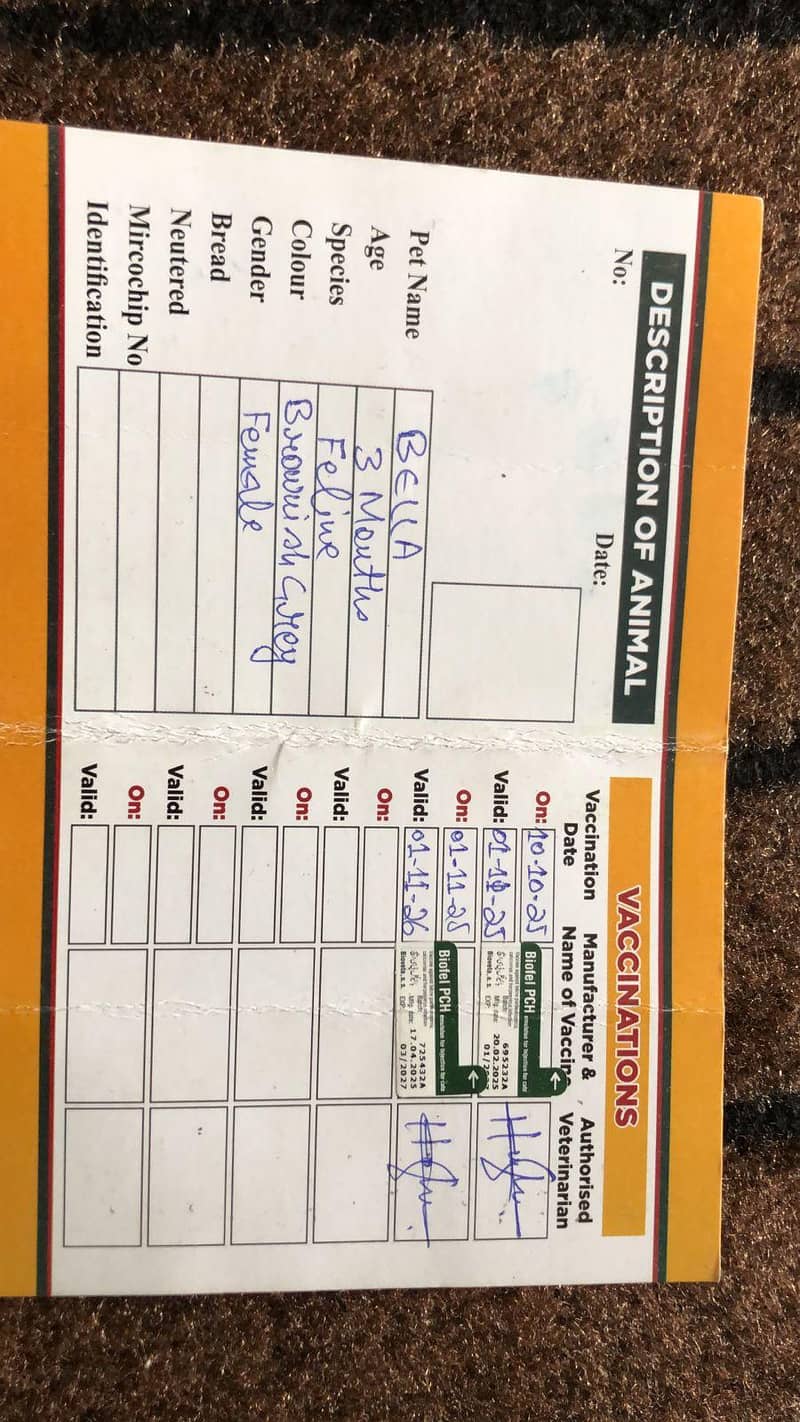 DESCRIPTION OF ANIMAL
No:
Date:
Pet Name BELLA
Age 3 Months
Species Feline
Colour Brownish Grey
Gender Female
Bread
Neutered
Mircochip No
Identification
VACCINATIONS
Vaccination Date
Manufacturer & Name of Vaccine
Authorised Veterinarian
On: 10-10-25
Valid: 01-11-25
Biofel PCH emulsion for injection for cats
695232A
20.02.2025
Bioveta, a. s. EXP:
On: 01-11-25
Valid: 01-11-26
Biofel PCH emulsion for injection for cats
725432A
Mfg. date: 17.04.2025
Bioveta, a. s. EXP: 03/2027
On:
Valid:
On:
Valid:
On:
Valid:
On:
Valid: